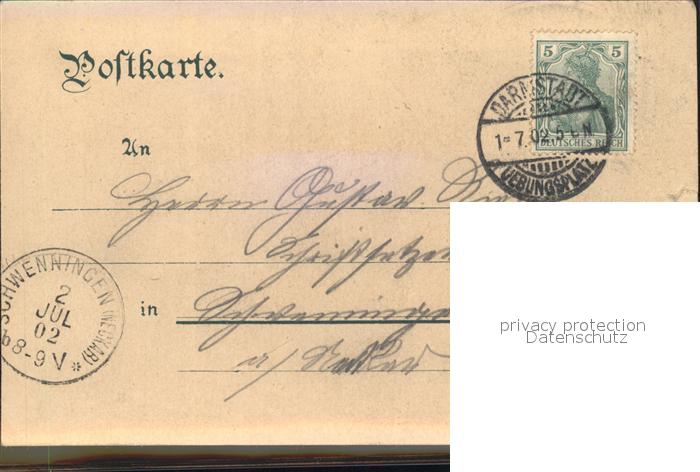 Postkarte.
5 5
DEUTSCHES REICH
DARMSTADT
1-7.02.5-6 N
UEBUNGSPLATZ
An
Herrn Gustav
Schriftsetzer
in Schwenningen
a/ Neckar
SCHWENNINGEN (NECKAR)
2
JUL
02
8-9 V
*
privacy protection
Datenschutz